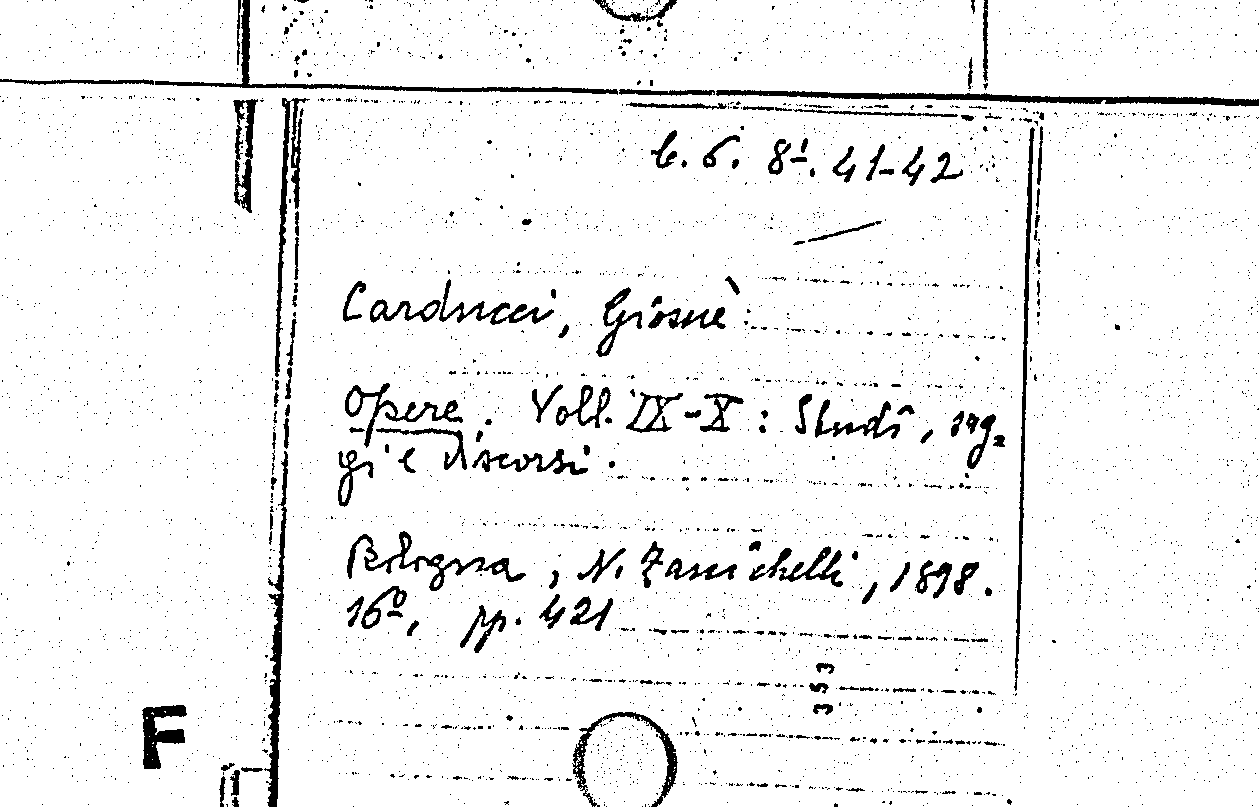 b. 6. 8¹. 41-42
Carducci, Giosuè
Opere. Voll. IX-X : Studi, sag=
gi e discorsi.
Bologna, N. Zanichelli, 1898.
16º, pp. 421
353
F